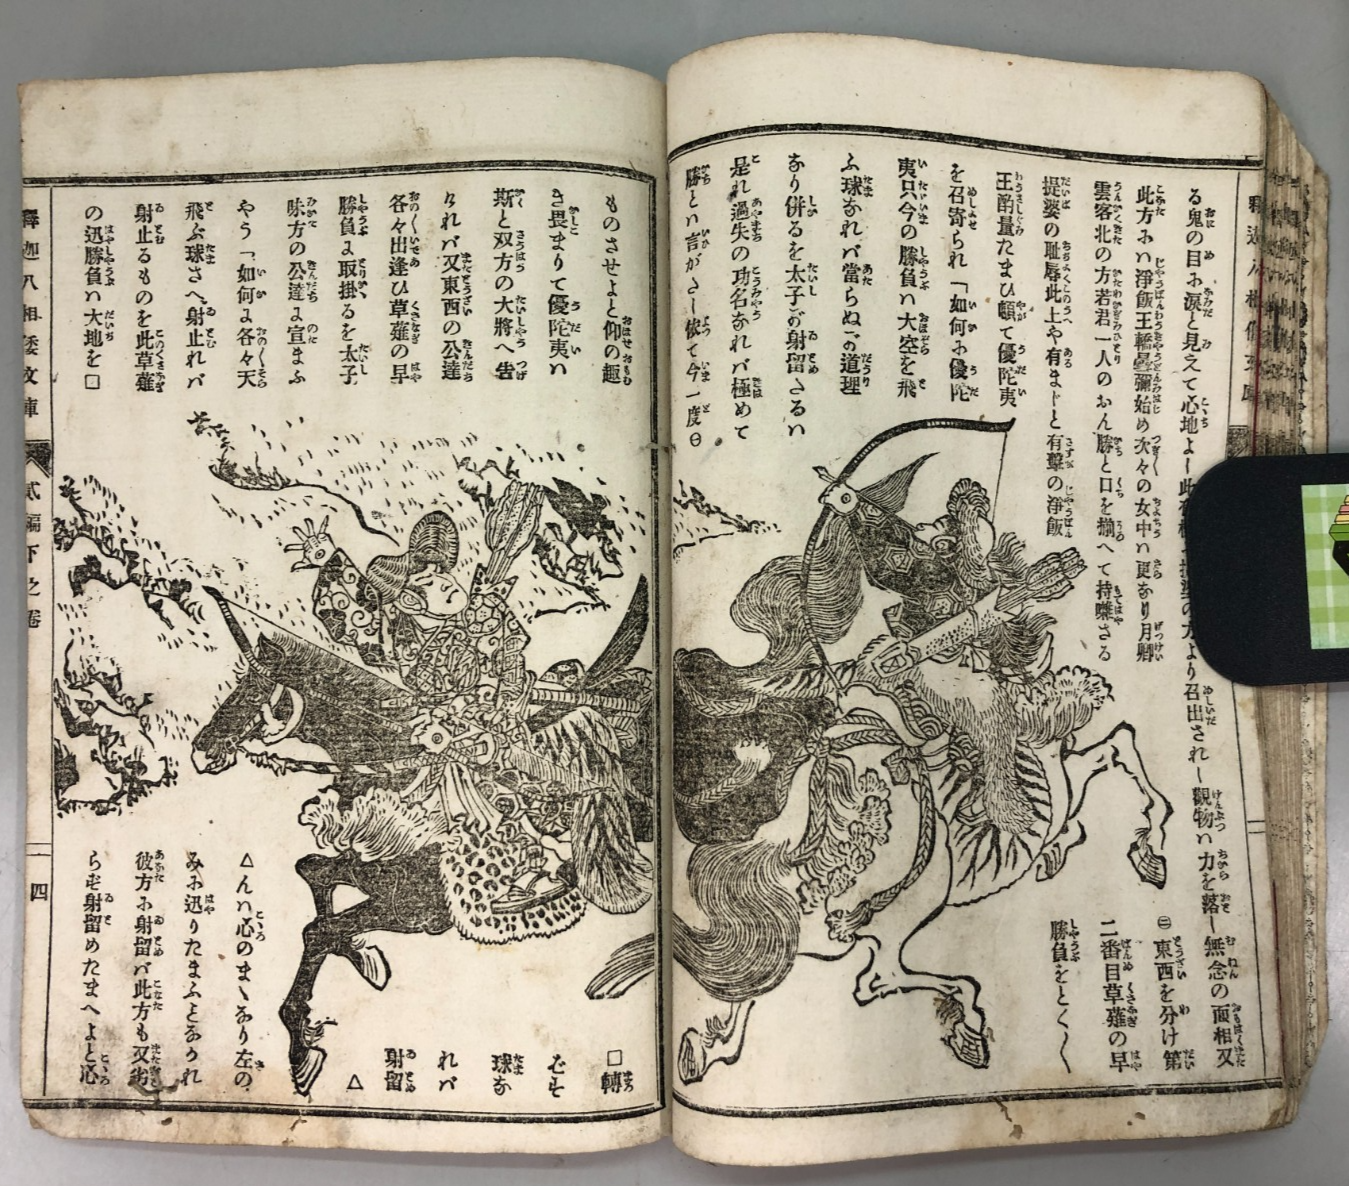 る鬼の目に涙と見えて心地よし此
より召出されし觀物ハ力を落し無念の面相又
此方にハ淨飯王轎曇彌始め次々の女中ハ更なり月卿
雲客北の方若君一人のおん勝と口を揃へて持囃さる
提婆の恥辱此上や有まじと有繋の淨飯
王酌量たまひ頓て優陀夷
を召寄られ「如何に優陀
夷只今の勝負ハ大空を飛
ふ球なれバ當らぬが道理
なり併るを太子が射留さるハ
是れ過失の功名なれバ極めて
勝とハ言がたし依て今一度㊀
㊁東西を分け第
二番目草薙の早
勝負をとく〳〵
ものさせよと仰の趣
き畏まりて優陀夷ハ
斯と双方の大將へ告
けれバ又東西の公達
各々出逢ひ草薙の早
勝負に取掛るを太子
味方の公達に宣まふ
やう「如何に各々天
飛ぶ球さへ射止れバ
射止るものを此草薙
の迅勝負ハ大地を□
□轉
ばす
球な
れバ
射留
△
△んハ心のまゝなり左の
みに迅りたまふとなかれ
彼方に射留バ此方も又劣
らず射留めたまへよと心
釋迦八相倭文庫
貳編下之卷
四